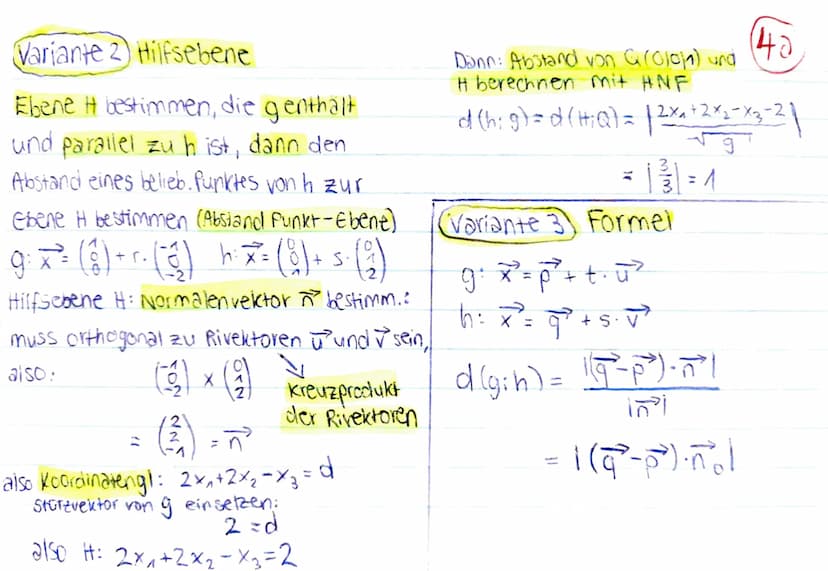 Variante 2 Hilfsebene
Ebene H bestimmen, die g enthält
und parallel zu h ist, dann den
Abstand eines belieb. Punktes von h zur
Ebene H bestimmen (Abstand Punkt-Ebene)
g: x⃗ = (1 0 0) + r · (-1 0 -2) h: x⃗ = (0 0 1) + s · (0 1 2)
Hilfsebene H: Normalenvektor n⃗ bestimm.:
muss orthogonal zu Rivektoren u⃗ und v⃗ sein,
also: (-1 0 -2) × (0 1 2)
Kreuzprodukt
der Rivektoren
= (2 2 -1) = n⃗
also Koordinatengl: 2x₁+2x₂-x₃=d
Stützvektor von g einsetzen:
2 = d
also H: 2x₁+2x₂-x₃=2
4a
Dann: Abstand von Q(0|0|1) und
H berechnen mit HNF
d(h;g) = d(H;Q) = |(2x₁+2x₂-x₃-2)/√9|
= |3/3| = 1
Variante 3 Formel
g: x⃗ = p⃗ + t · u⃗
h: x⃗ = q⃗ + s · v⃗
d(g;h) = |(q⃗-p⃗)·n⃗| / |n⃗|
= |(q⃗-p⃗)·n⃗₀|